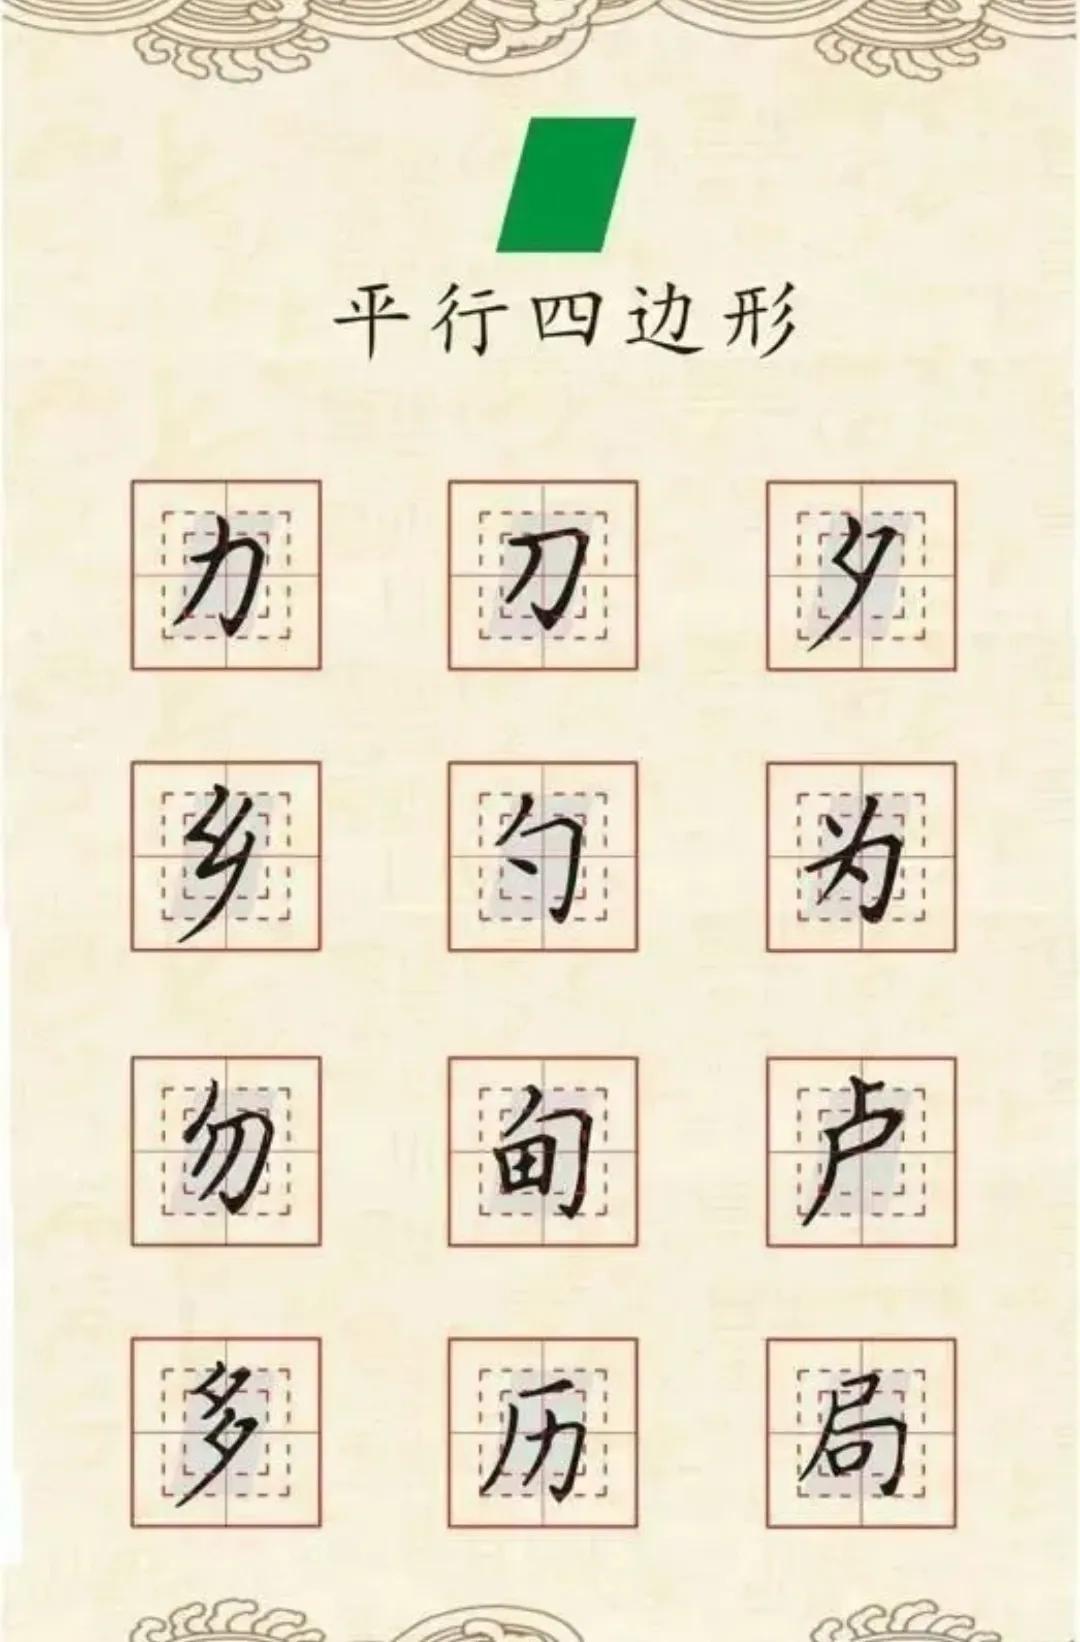 平行四边形
力 刀 夕
乡 勺 为
勿 甸 卢
多 历 局